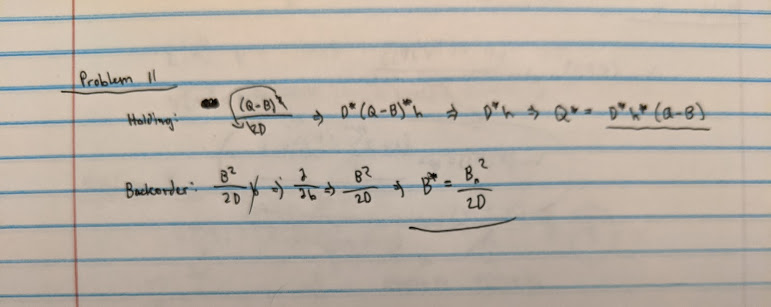 Problem 11
Holding: (Q-B)² / 2D ⇒ D*(Q-B)*h ⇒ D*h ⇒ Q* = D*h*(Q-B)
Backorder: B²/2D b ⇒ 2/2b ⇒ B²/2D ⇒ B* = Bₙ²/2D